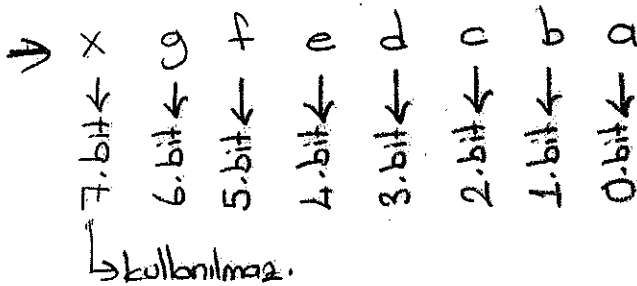 ⇒ x g f e d c b a
7.bit 6.bit 5.bit 4.bit 3.bit 2.bit 1.bit 0.bit
↳ kullanılmaz.